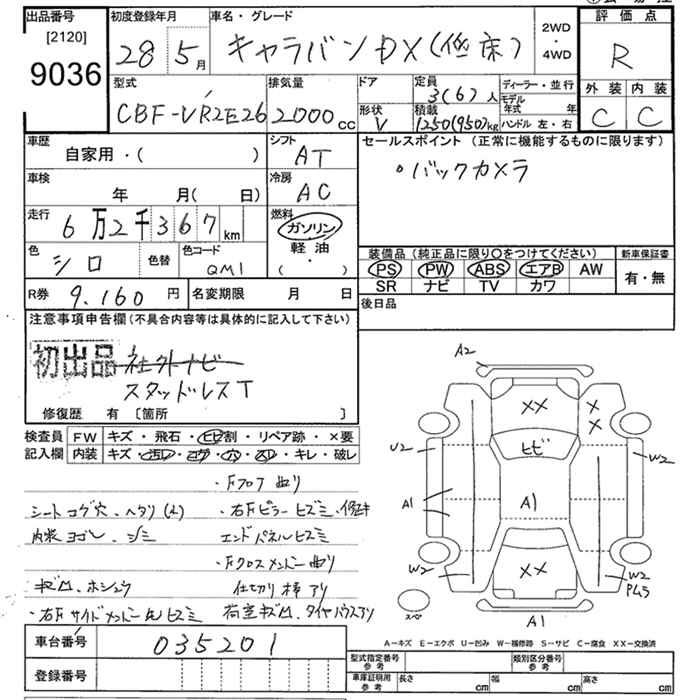 出品番号
[2120]
9036
初度登録年月
28 5月
車名・グレード
キャラバン DX (低床)
2WD
・
4WD
評価点
R
外装 内装
C C
型式
CBF-VR2E26
排気量
2000cc
ドア
形状
V
定員
3(6)人
積載
1250(950)kg
ディーラー・並行
モデル年式 年
ハンドル 左・右
車歴
自家用・( )
シフト
AT
車検
年 月( 日)
冷房
AC
走行
6万2千367km
燃料
ガソリン
軽油
( ・ )
色
シロ
色替
色コード
QM1
R券 9.160円
名変期限 月 日
セールスポイント (正常に機能するものに限ります)
・バックカメラ
装備品 (純正品に限り〇をつけてください)
PS PW ABS エアB AW
SR ナビ TV カワ
新車保証書
有・無
後日品
注意事項申告欄(不具合内容等は具体的に記入して下さい)
初出品 社外ナビ
スタッドレスT
修復歴 有 〔箇所 〕
検査員記入欄
FW キズ・飛石・ヒビ割・リペア跡・×要
内装 キズ・汚レ・コゲ・穴・スレ・キレ・破レ
・Fフロア曲り
シートコゲ穴、ヘタリ(大) ・右Fピラーヒズミ・修正キ
内装ヨゴレ、シミ エンドパネルヒズミ
・Fクロスメンバー曲り
キズ凹、ホシュウ 仕切り棒アリ
・右Fサイドメンバー凹ヒズミ 荷室キズ凹、タイヤハウスアリ
車台番号 035201
登録番号
A2
XX
X
X
ヒビ
U2
W2
A1
A1
W2
XX
W2
P43
スペ
A1
A－キズ E－エクボ U－凹み W－補修跡 S－サビ C－腐食 XX－交換済
型式指定番号参考
類別区分番号参考
車庫証明用参考
長さ cm
幅 cm
高さ cm